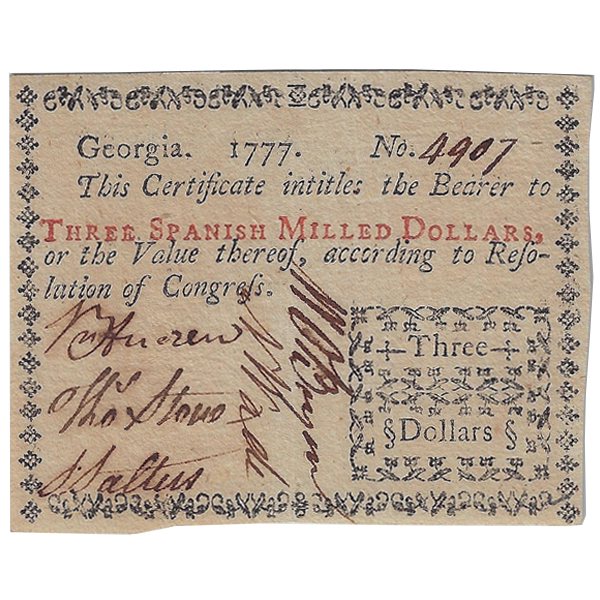 Georgia. 1777. No. 4907
This Certificate intitles the Bearer to
THREE SPANISH MILLED DOLLARS,
or the Value thereof, according to Reſo-
lution of Congreſs.
Wm Andrew
Thos Stone
S Saltus
N Wade
Three
§ Dollars §